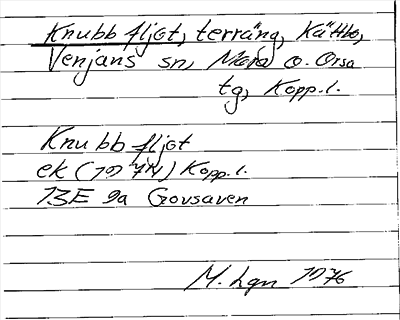 Knubbfljot, terräng, Kättbo,
Venjans sn, Mora o. Orsa
tg, Kopp.l.
Knubbfljot
ek (1974) Kopp.l.
13E 9a Govsaven
M. Lgn 1976